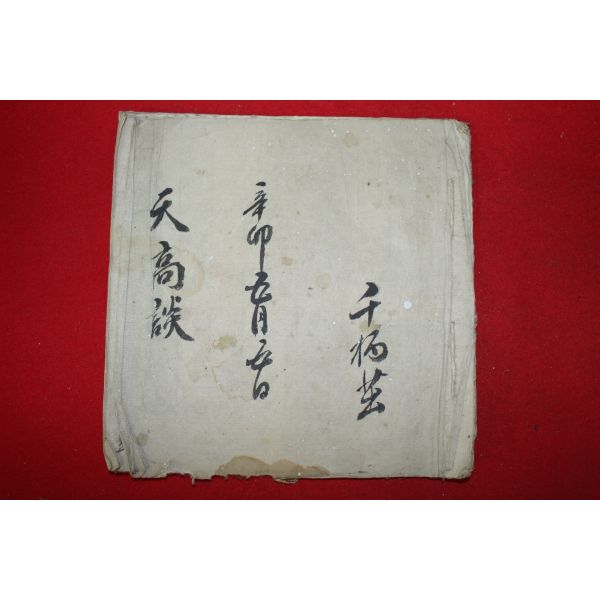 千柄
辛卯五月五日
天高談